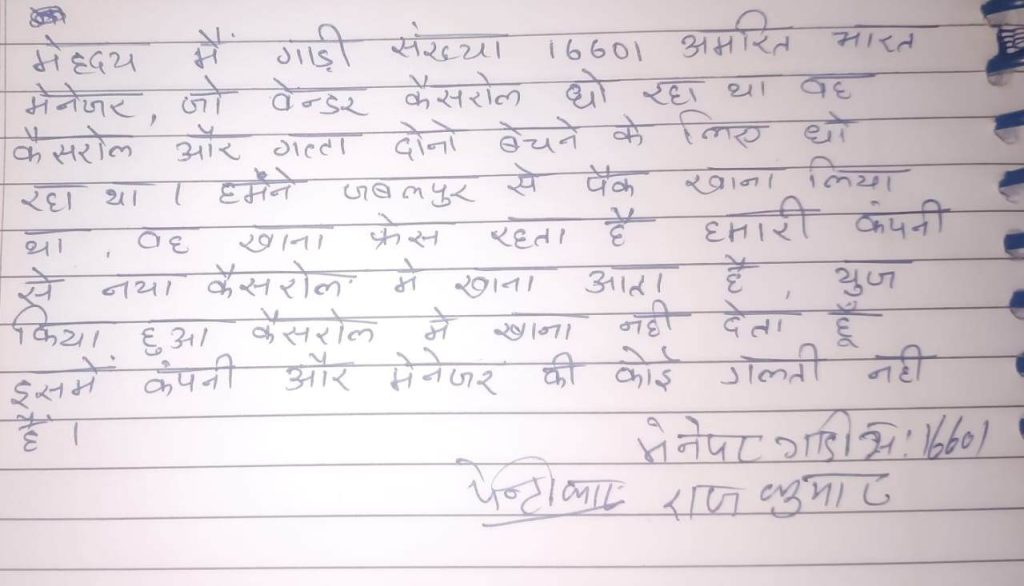 मेहदय में गाड़ी संख्या 16601 अमरित भारत
मेनेजर, जो वेन्डर कैसरोल धो रहा था वह
कैसरोल और गत्ता दोनो बेचने के लिए धो
रहा था । हमने जबलपुर से पैक खाना लिया
था , वह खाना फ्रेस रहता है हमारी कंपनी
से नया कैसरोल मे खाना आता है , युज
किया हुआ कैसरोल मे खाना नही देता हूँ
इसमें कंपनी और मेनेजर की कोई गलती नही
है ।
मेनेजर गाडी सं: 16601
पेन्ट्रीकार राज कुमार